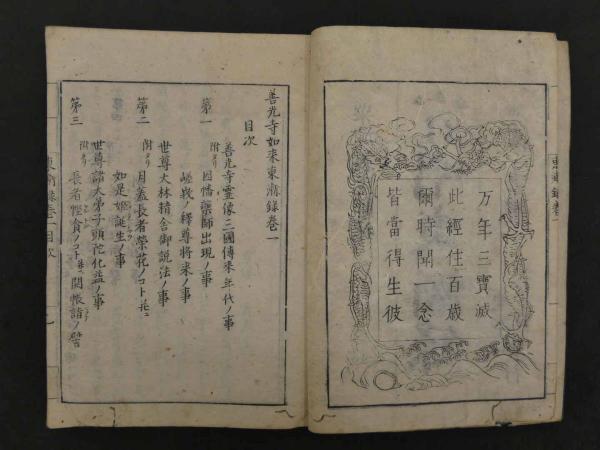 万年三寳滅
此經住百歳
爾時聞一念
皆當得生彼
善光寺如来東漸録卷一
目次
第一
善光寺霊像三國傳来年代ノ事
附タリ
因幡藥師出現ノ事
嵯峨ノ釋尊将来ノ事
第二
世尊大林精舎御説法ノ事
附タリ
月蓋長者榮花ノコト并ニ
如是姫誕生ノ事
第三
世尊諸大弟子頭陀化益ノ事
附タリ
長者慳貪ノコト并ニ開帳諸ノ譬